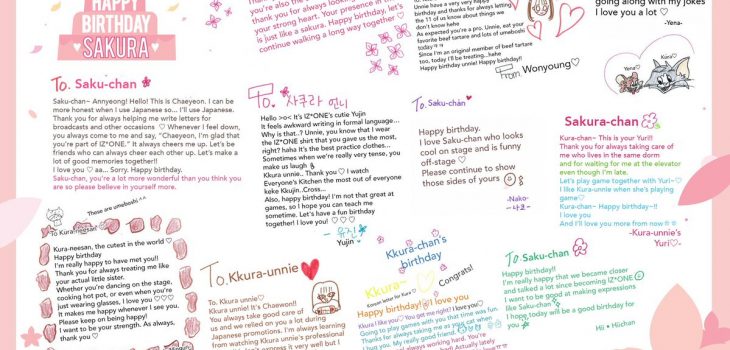 HAPPY
BIRTHDAY
SAKURA
you're also the
strong heart. Your presence in
is just like a sakura. Happy birthday, let's
continue walking a long way together ♡
Unnie have a very very happy
birthday and thanks for always letting
the 11 of us know about things we
don't know hehe
As expected you're a pro. Unnie, eat your
favorite beef tartare and lots of umeboshi
today
Since I'm an original member of beef tartare
too, today I'll be treating...hehe
Happy birthday unnie! Happy birthday!!
From Wonyoung♡
going along with my jokes
I love you a lot ♡
-Yena-
Yena
Kura
To. Saku-chan
Saku-chan~ Annyeong! Hello! This is Chaeyeon. I can be
more honest when I use Japanese so... I'll use Japanese.
Thank you for always helping me write letters for
broadcasts and other occasions ♡ Whenever I feel down,
you always come to me and say, "Chaeyeon, I'm glad that
you're part of IZ*ONE." It always cheers me up. Let's be
friends who can always cheer each other up. Let's make a
lot of good memories together!!
I love you ♡ aa... Sarry. Happy birthday.
Saku-chan, you're a lot more wonderful than you think you
are so please believe in yourself more.
To. 사쿠라 언니
Hello >o< It's IZ*ONE's cutie Yujin
It feels awkward writing in formal language...
Why is that..? Unnie, you know that I wear
the IZ*ONE shirt that you gave us the most,
right? haha It's the best practice clothes...
Sometimes when we're really very tense, you
make us laugh
Kkura unnie.. Thank you ♡ I watch
Everyone's Kitchen the most out of everyone
keke Kkujin..Cross...
Also, happy birthday! I'm not that great at
games, so I hope you can teach me
sometime. Let's have a fun birthday
together!! I love you! ♡
- 유진
Yujin
To. Saku-chan
Happy birthday.
I love Saku-chan who looks
cool on stage and is funny
off-stage ♡
Please continue to show
those sides of yours
-Nako-
-나코-
Sakura-chan
Kura-chan~ This is your Yuri!!
Thank you for always taking care of
me who lives in the same dorm
and for waiting for me at the elevator
even though I'm late.
Let's play game together with Yuri~♡
I like Kura-unnie when she's playing
game♡
Kura-chan~ Happy birthday~!!
I love you
And I'll love you more from now
-Kura-unnie's
Yuri♡-
These are umeboshi ^^
To Kura
Kura-neesan, the cutest in the world ♡
Happy birthday
I'm really happy to have met you!!
Thank you for always treating me like
your actual little sister.
Whether you're dancing on the stage,
cooking hot pot, or even when you're
just wearing glasses, I love you ♡♡♡
It makes me happy whenever I see you.
Please keep on being happy!
I want to be your strength. As always,
thank you ♡
To. Kkura-unnie
To. Kkura unnie♡
Kkura unnie! It's Chaewon!!
You always take good care of
us and we relied on you a lot during
Japanese promotions. I'm always learning
from watching Kkura unnie's professional
Kkura-chan's
birthday
Kkura~
Congrats!
Korean letter for Kura ♡
Happy birthday! I love you
Kkura I like you♡ You get me right? I love you♡
Going to play games with you that time was fun
Thanks for always taking me as your cat when
I hug you. My really good friend.
always working hard. You're
To. Saku-chan
Happy birthday!!
I'm really happy that we became closer
and talked a lot since becoming IZ*ONE
I want to be good at making expressions
like Saku-chan
I hope today will be a good birthday for
you
Hii • Hiichan